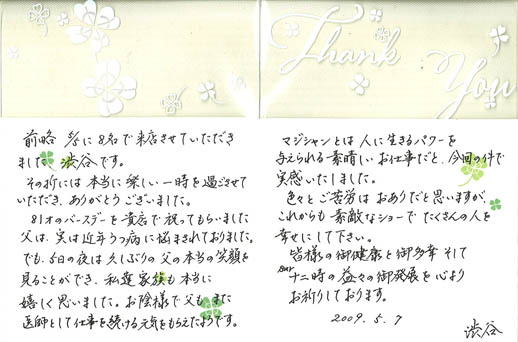 Thank
You
前略 5/5に8名で来店させていただき
ました渋谷です。
その折には本当に楽しい一時を過ごさせて
いただき、ありがとうございました。
81才のバースデーを貴店で祝ってもらいました
父は、実は近年うつ病に悩まされておりました。
でも、5日の夜は久しぶりの父の本当の笑顔を
見ることができ、私達家族も本当に
嬉しく思いました。お陰様で父も また
医師として仕事を続ける元気をもらえたようです。
マジシャンとは人に生きるパワーを
与えられる素晴しいお仕事だと、今回の件で
実感いたしました。
色々とご苦労はおありだと思いますが、
これからも素敵なショーでたくさんの人を
幸せにして下さい。
皆様の御健康と御多幸 そして
Bar十二時の益々の御発展を心より
お祈りしております。
2009.5.7
渋谷